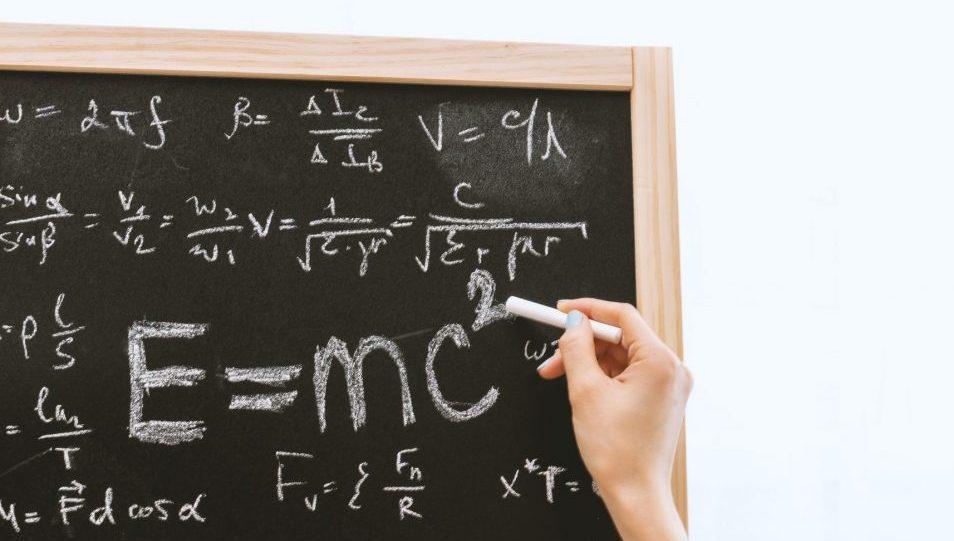 ω = 2πf β = ΔI_c / ΔI_B V = qλ
sin α / sin β = v_1 / v_2 = n_2 / n_1 V = 1 / √(ε·μ) = c / √(ε_r μ_r)
= ρ l / S
E = mc²
= ln_2 / T
F_v = ξ F_n / R
= F⃗ d cos α